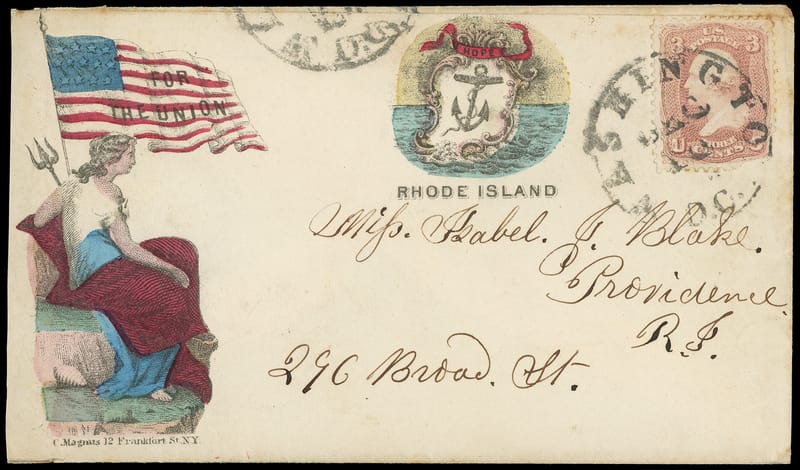 FOR
THE UNION
HOPE
RHODE ISLAND
U.S.
POSTAGE
3 3
U CENTS
WASHINGTO
DEC
D.C.
Miss. Isabel. J. Blake.
Providence.
R.I.
296 Broad. St.
C. Magnus 12 Frankfort St. N.Y.